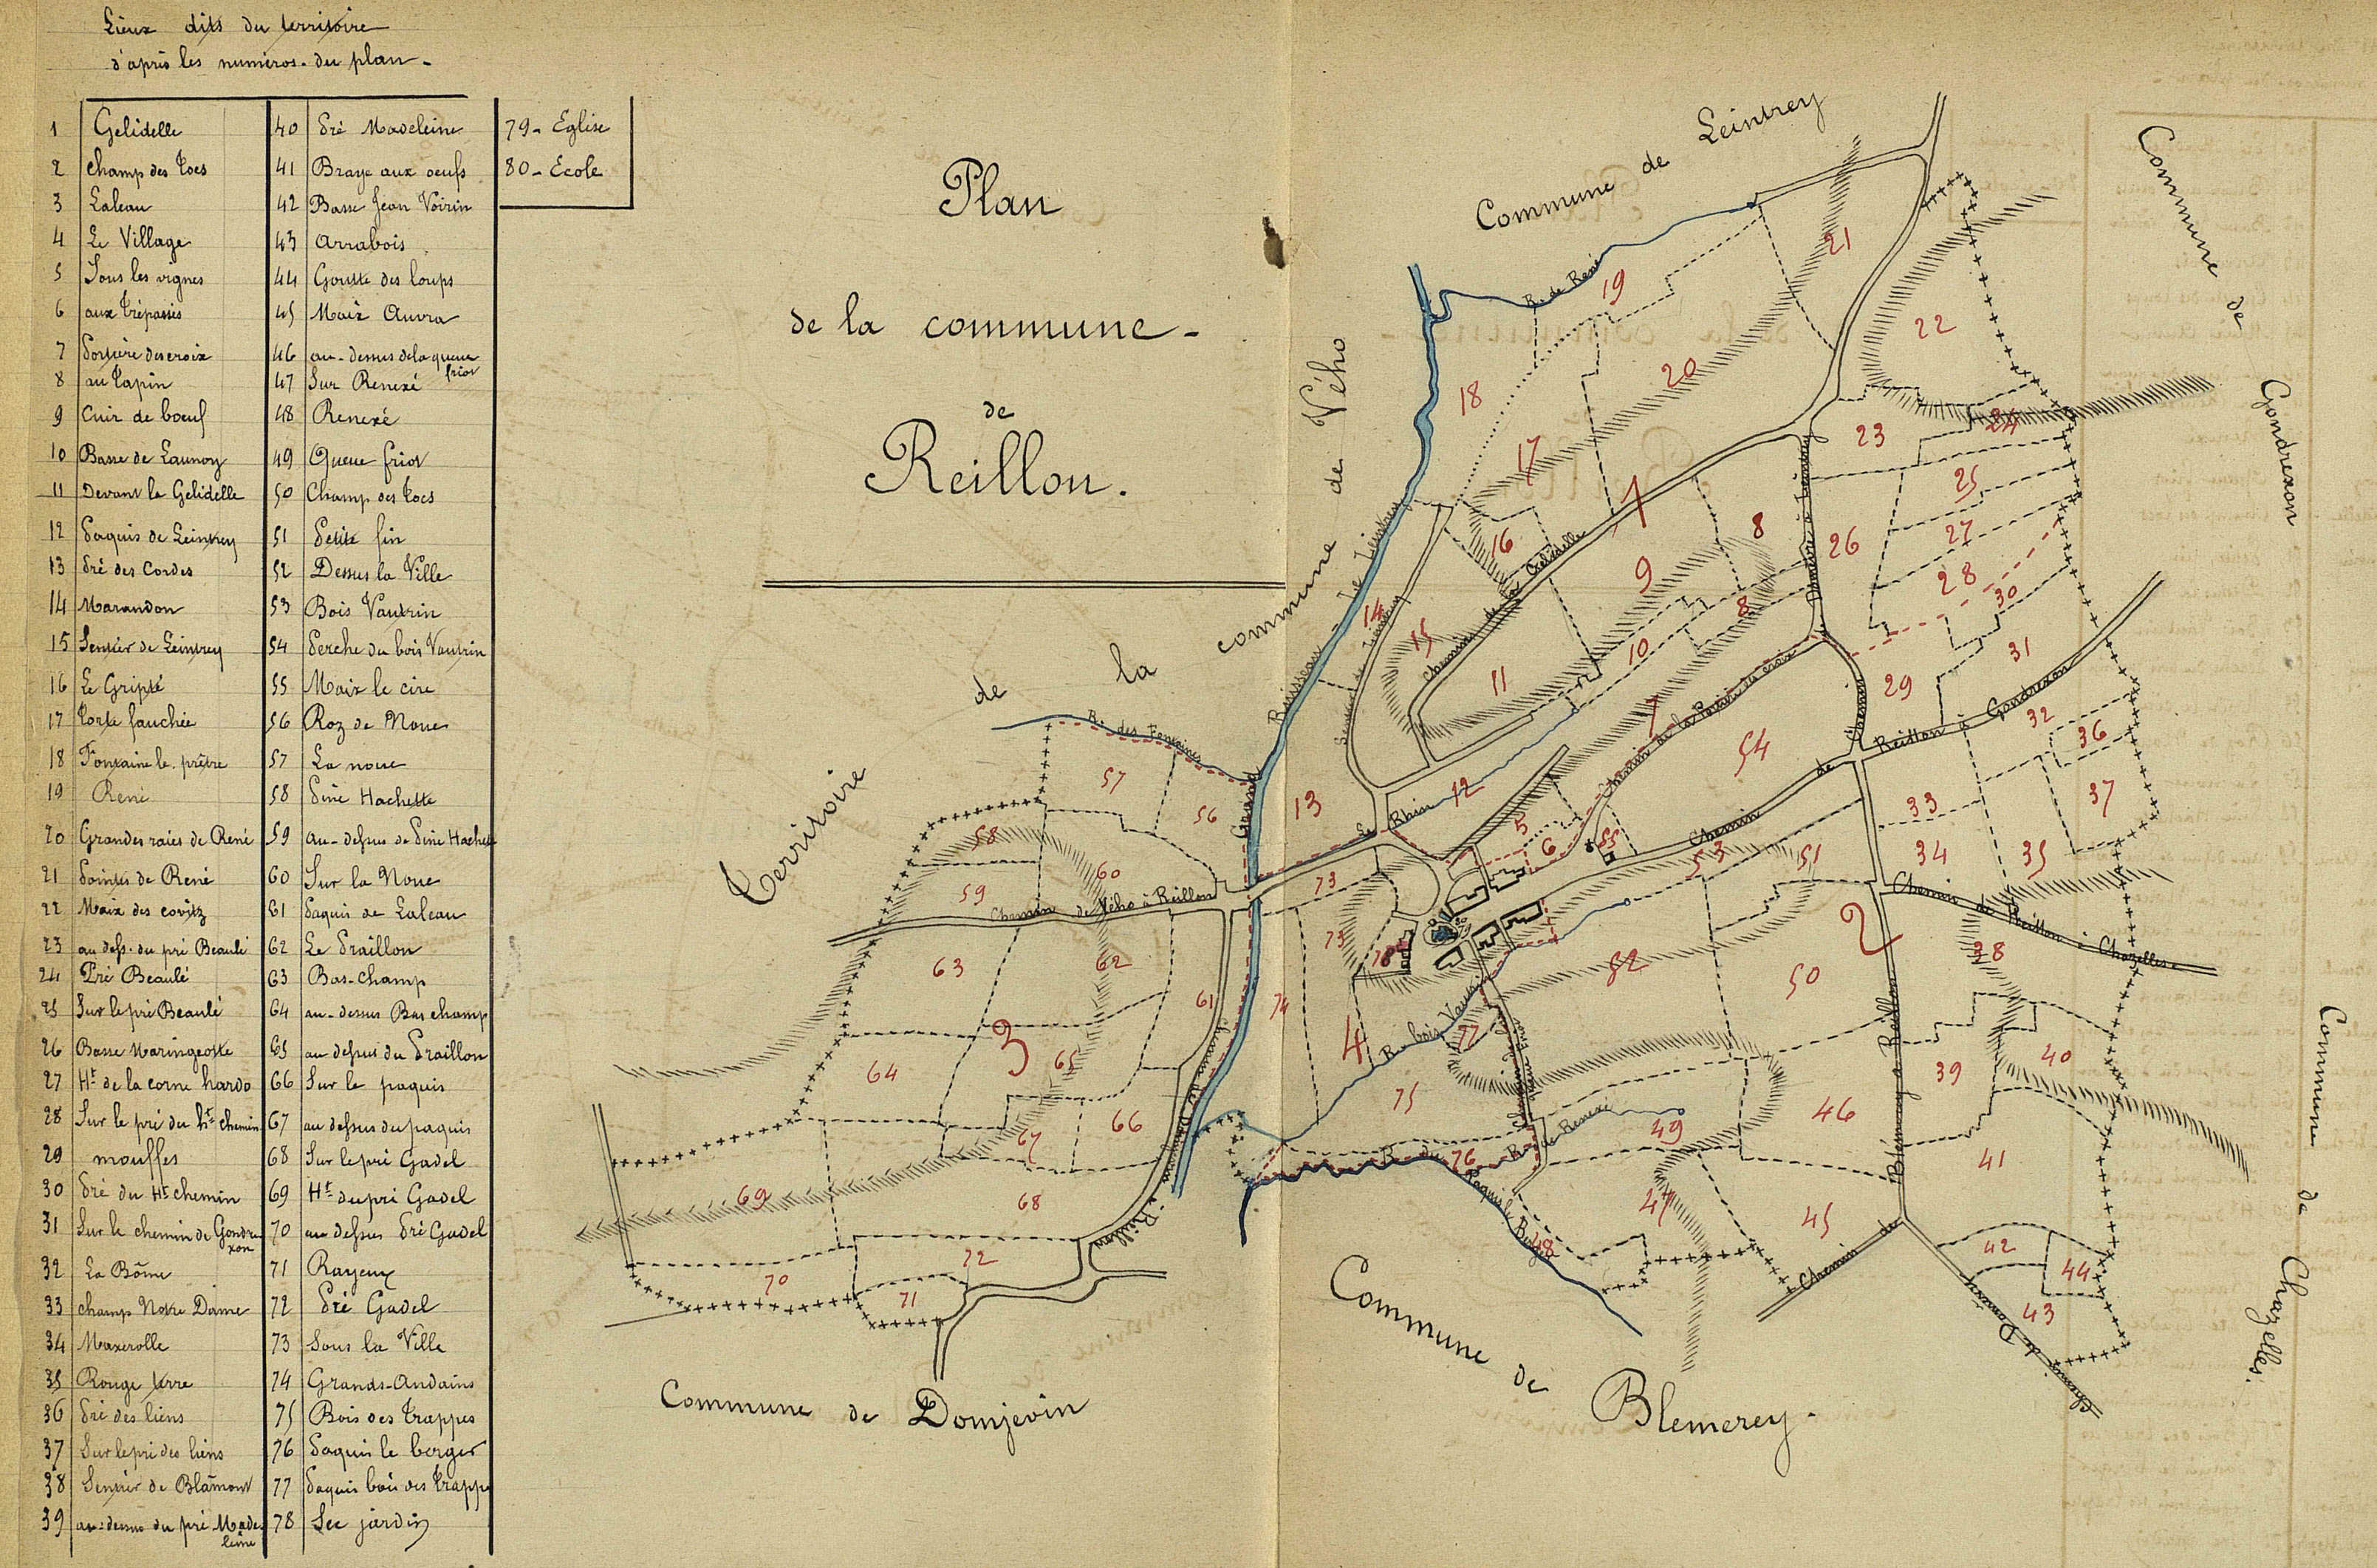 Lieux dits du territoire
d'après les numéros du plan -
1 Gelidelle
2 Champ des Tocs
3 Laleau
4 Le Village
5 Sous les vignes
6 aux Trépassés
7 Portière des croix
8 au Tapin
9 Cuir de bœuf
10 Basse de Launoy
11 Devant la Gelidelle
12 Paquis de Leintrey
13 Pré des Cordes
14 Marandon
15 Sentier de Leintrey
16 Le Gripté
17 Torte fauchée
18 Fontaine le prêtre
19 René
20 Grandes raies de René
21 Pointes de René
22 Maix des covitz
23 au dess. du pré Beaulé
24 Pré Beaulé
25 Sur le pré Beaulé
26 Basse Maringeotte
27 Ht de la corne hardo
28 Sur le pré du ht chemin
29 mouffles
30 Pré du Ht chemin
31 Sur le chemin de Gondrexon
32 La Bôme
33 champ Notre Dame
34 Maxerolle
35 Rouge terre
36 Pré des liens
37 Sur le pré des liens
38 Sentier de Blâmont
39 au-dessus du pré Madeleine
40 Pré Madeleine
41 Braye aux oeufs
42 Basse Jean Voirin
43 Arrabois
44 Goutte des loups
45 Maix Auvra
46 au-dessus de la queue friot
47 Sur Renexé
48 Renexé
49 Queue friot
50 Champ des Tocs
51 Petite fin
52 Dessus la Ville
53 Bois Vautrin
54 Perche du bois Vautrin
55 Maix le cire
56 Roz de Noue
57 La noue
58 Piné Hachette
59 Au-dessus de Piné Hachette
60 Sur la Noue
61 Paquis de Laleau
62 Le Praillon
63 Bas-champ
64 au-dessus Bas champ
65 au dessus du Praillon
66 Sur le paquis
67 au dessus du paquis
68 Sur le pré Gadel
69 Ht du pré Gadel
70 au dessus Pré Gadel
71 Rayeux
72 Pré Gadel
73 Sous la Ville
74 Grands-Andains
75 Bois des Trappes
76 Paquis le berger
77 Paquis bois des Trappes
78 Les jardins
79 - Eglise
80 - Ecole
Plan
de la commune -
de
Reillon.
Commune de Leintrey
Commune de Gondrexon
Commune de Chazelles.
Commune de Blemerey.
Commune de Domjevin
Territoire de la commune de Vého
R. de René
R. des Fontaines
Grand Ruisseau de Leintrey
Sentier de Leintrey
Chemin de la Gelidelle
Domèvre à Leintrey
Chemin
Chemin de la Portière des croix
Le Rhin
Chemin de Reillon à Gondrexon
Chemin de Vého à Reillon
Chemin de Reillon à Chazelles
R. bois Vautrin
Queue friot
R. de Renexé
R. du Paquis le Berger
Chemin de Domjevin à Reillon
Chemin de Blémerey à Reillon
Chemin de Domèvre
1
2
3
4
5
6
7
8
8
9
10
11
12
13
14
15
16
17
18
19
20
21
22
23
24
25
26
27
28
29
30
31
32
33
34
35
36
37
38
39
40
41
42
43
44
45
46
47
48
49
50
51
52
53
54
55
56
57
58
59
60
61
62
63
64
65
66
67
68
69
70
71
72
73
73
74
75
76
77
78